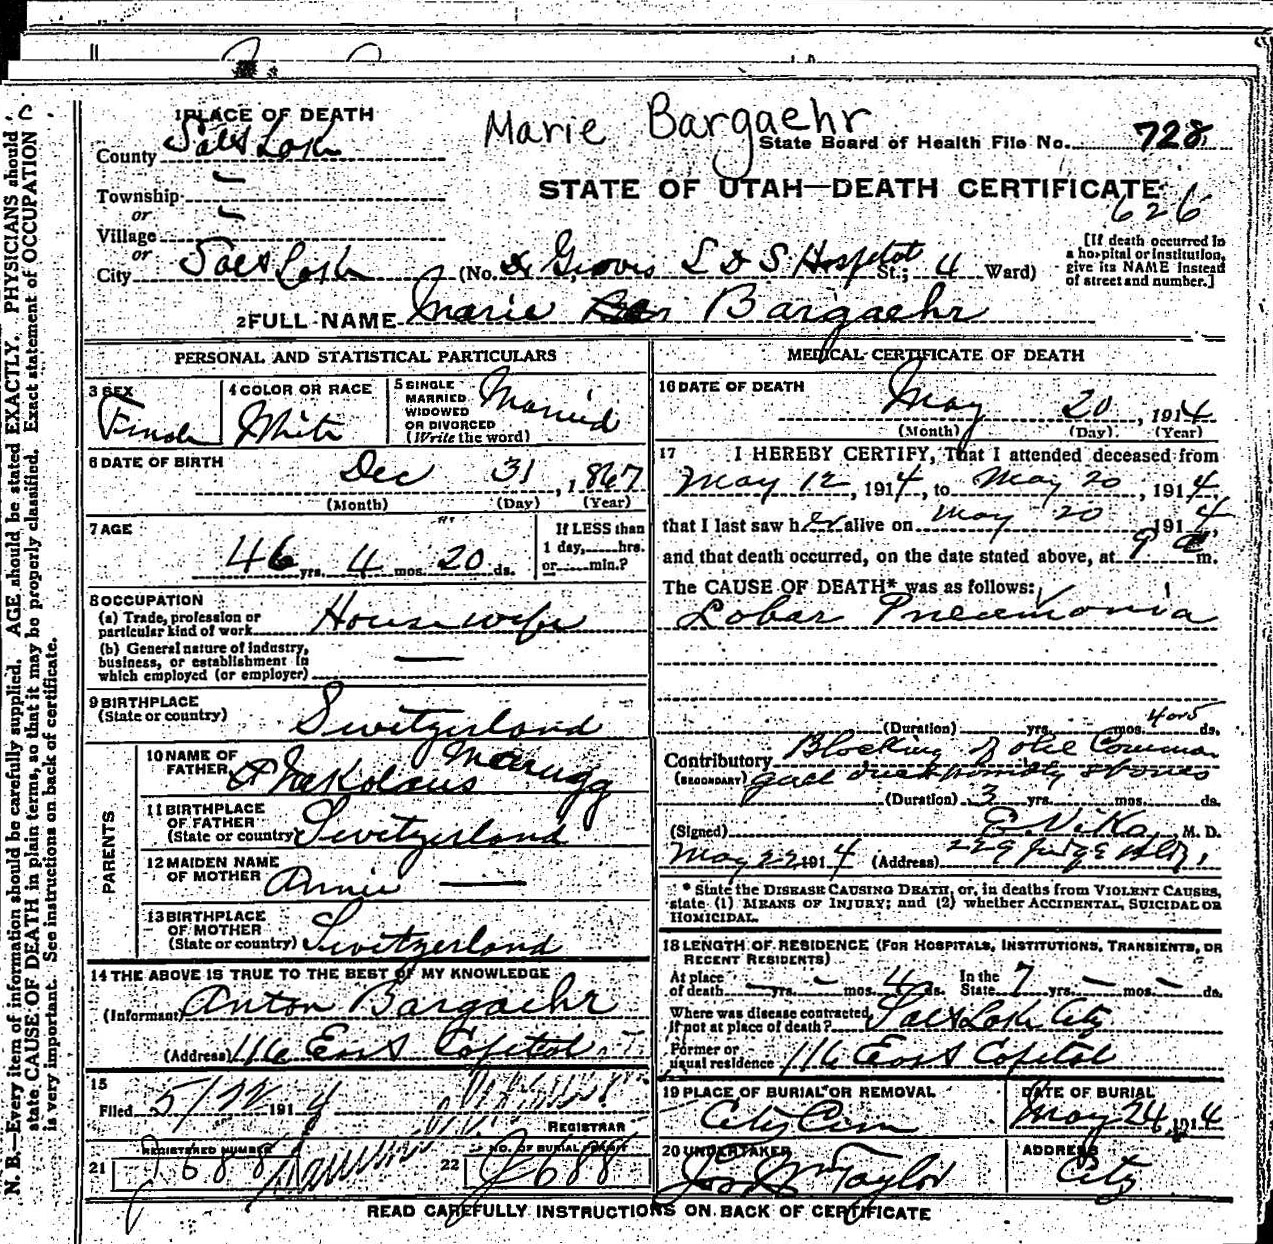 1 PLACE OF DEATH
Marie Bargaehr
County Salt Lake
State Board of Health File No. 728
Township
or
STATE OF UTAH—DEATH CERTIFICATE
626
Village
or
City Salt Lake (No. Groves L D S Hospital St.; 4 Ward)
[If death occurred in a hospital or institution, give its NAME instead of street and number.]
2 FULL NAME Marie Bargaehr
PERSONAL AND STATISTICAL PARTICULARS
3 SEX Female
4 COLOR OR RACE White
5 SINGLE MARRIED WIDOWED OR DIVORCED (Write the word) Married
6 DATE OF BIRTH Dec 31, 1867
(Month) (Day) (Year)
7 AGE 46 yrs. 4 mos. 20 ds.
If LESS than 1 day, hrs. or min.?
8 OCCUPATION
(a) Trade, profession or particular kind of work House wife
(b) General nature of industry, business, or establishment in which employed (or employer) —
9 BIRTHPLACE (State or country) Switzerland
PARENTS
10 NAME OF FATHER Marugg
11 BIRTHPLACE OF FATHER (State or country) Switzerland
12 MAIDEN NAME OF MOTHER Annie —
13 BIRTHPLACE OF MOTHER (State or country) Switzerland
14 THE ABOVE IS TRUE TO THE BEST OF MY KNOWLEDGE
(Informant) Anton Bargaehr
(Address) 116 East Capitol
15
Filed 5/22 1914
REGISTRAR
21 REGISTERED NUMBER
22 NO. OF BURIAL PERMIT
MEDICAL CERTIFICATE OF DEATH
16 DATE OF DEATH May 20, 1914
(Month) (Day) (Year)
17 I HEREBY CERTIFY, That I attended deceased from
May 12, 1914, to May 20, 1914,
that I last saw her alive on May 20 1914
and that death occurred, on the date stated above, at 9 a m.
The CAUSE OF DEATH* was as follows:
Lobar Pneumonia
(Duration) yrs. mos. 4 or 5 ds.
Contributory Blocking of the Common
(SECONDARY) gall duct stones
(Duration) 3 yrs. mos. ds.
(Signed) M. D.
May 22 1914 (Address) 229 Judge Bldg.
* State the DISEASE CAUSING DEATH, or, in deaths from VIOLENT CAUSES, state (1) MEANS OF INJURY; and (2) whether ACCIDENTAL, SUICIDAL OR HOMICIDAL.
18 LENGTH OF RESIDENCE (FOR HOSPITALS, INSTITUTIONS, TRANSIENTS, OR RECENT RESIDENTS)
At place of death — yrs. — mos. 4 ds. In the State 7 yrs. — mos. — ds.
Where was disease contracted if not at place of death? Salt Lake City
Former or usual residence 116 East Capitol
19 PLACE OF BURIAL OR REMOVAL City Cem
DATE OF BURIAL May 24, 1914
20 UNDERTAKER Jos Wm Taylor
ADDRESS City
READ CAREFULLY INSTRUCTIONS ON BACK OF CERTIFICATE
N. B.—Every item of information should be carefully supplied. AGE should be stated EXACTLY. PHYSICIANS should
state CAUSE OF DEATH in plain terms, so that it may be properly classified. Exact statement of OCCUPATION
is very important. See instructions on back of certificate.